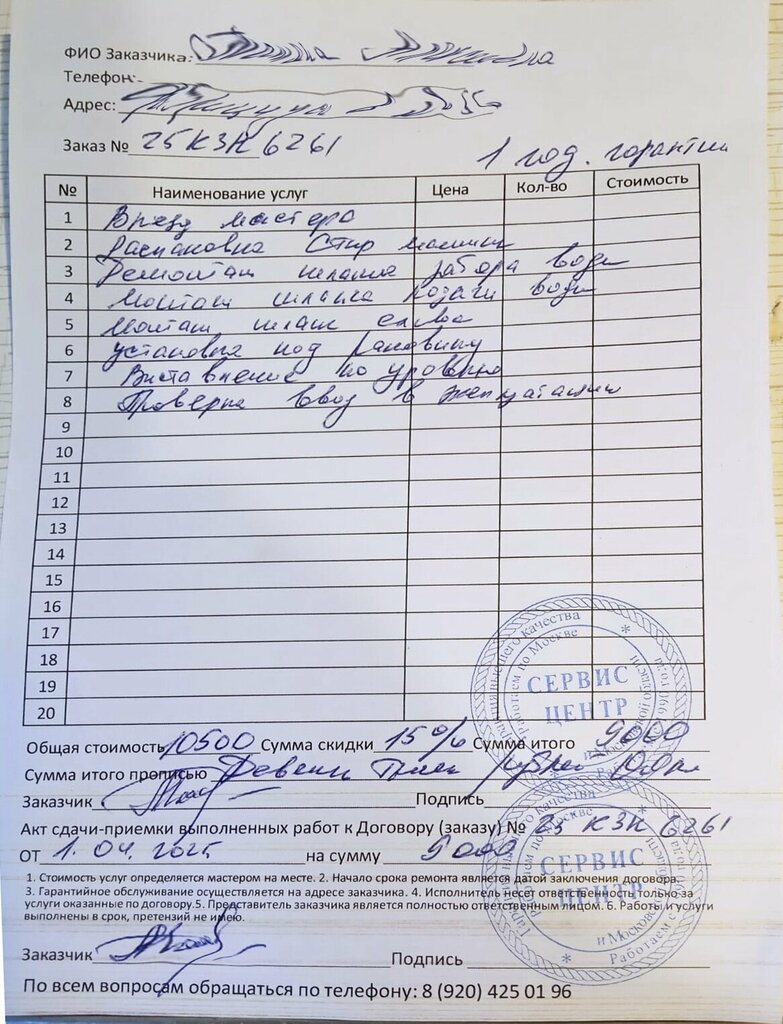 ФИО Заказчика:
Телефон:
Адрес:
Заказ № 25КЗН6261
1 год. горантии
№ Наименование услуг Цена Кол-во Стоимость
1 Вызд мастера
2 Распаковка Стир машины
3 Демонтаж шланга забора воды
4 Монтаж шланга подачи воды
5 Монтаж шланг слива
6 установка под раковину
7 Виставление по уровню
8 Проверка ввод в эксплуатации
9
10
11
12
13
14
15
16
17
18
19
20
СЕРВИС
ЦЕНТР
Работаем по Москве
и Московской области
Общая стоимость 10500 Сумма скидки 15% Сумма итого 9000
Сумма итого прописью Девять тысяч рублей
Заказчик Подпись
Акт сдачи-приемки выполненных работ к Договору (заказу) № 25 КЗН 6261
от 1.04.2025 на сумму 9000
1. Стоимость услуг определяется мастером на месте. 2. Начало срока ремонта является датой заключения договора.
3. Гарантийное обслуживание осуществляется на адресе заказчика. 4. Исполнитель несет ответственность только за
услуги оказанные по договору.5. Представитель заказчика является полностью ответственным лицом. 6. Работы и услуги
выполнены в срок, претензий не имею.
СЕРВИС
ЦЕНТР
Заказчик Подпись
По всем вопросам обращаться по телефону: 8 (920) 425 01 96